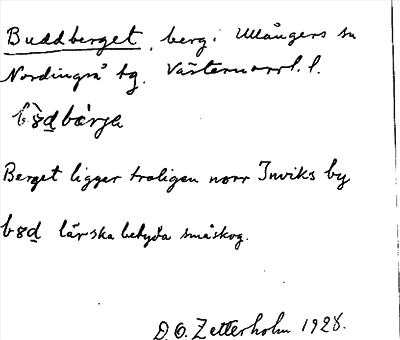 Buddberget, berg i Ullångers sn
Nordingrå tg. Västernorrl. l.
b8̀d bàrja
Berget ligger troligen norr Inviks by
b8d lär ska betyda småskog.
D. O. Zetterholm 1928.